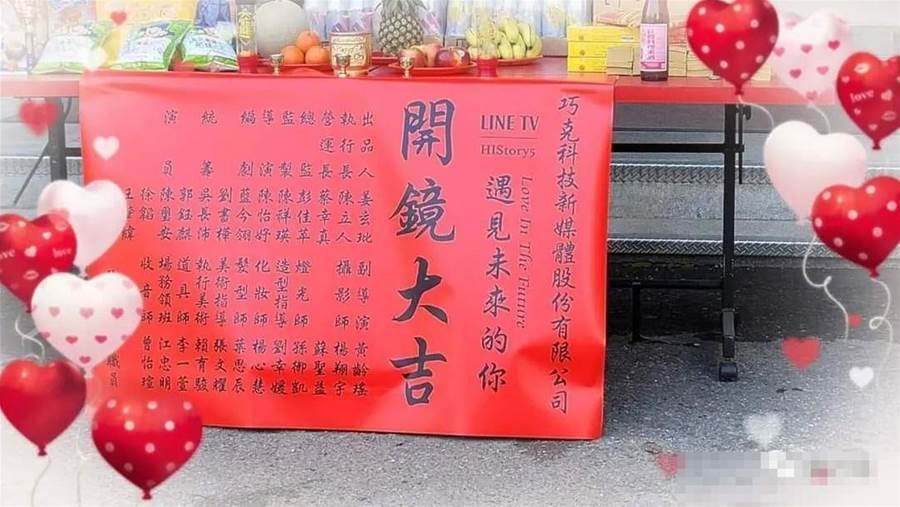 巧克科技新媒體股份有限公司
LINE TV
HIStory5
遇見未來的你
Love In The Future
開鏡大吉
出品人 姜玄玭
執行長 陳立人
營運長 蔡幸真
總監 彭佳苹
監製 陳祥瑛
導演 陳怡妤
編劇 藍今翎
劉書樺
統籌 吳長沛
郭鈺麒
演員 陳璽安
徐韜
副導演 黃齡瑤
攝影師 楊翔宇
蘇聖益
燈光師 孫御凱
造型指導 劉幸媛
化妝師 楊心慈
髮型師 葉思辰
美術指導 張文耀
執行美術 賴育駿
道具 李一萱
場務領班 江忠明
收音師 曾怡瑄
職員
love
love